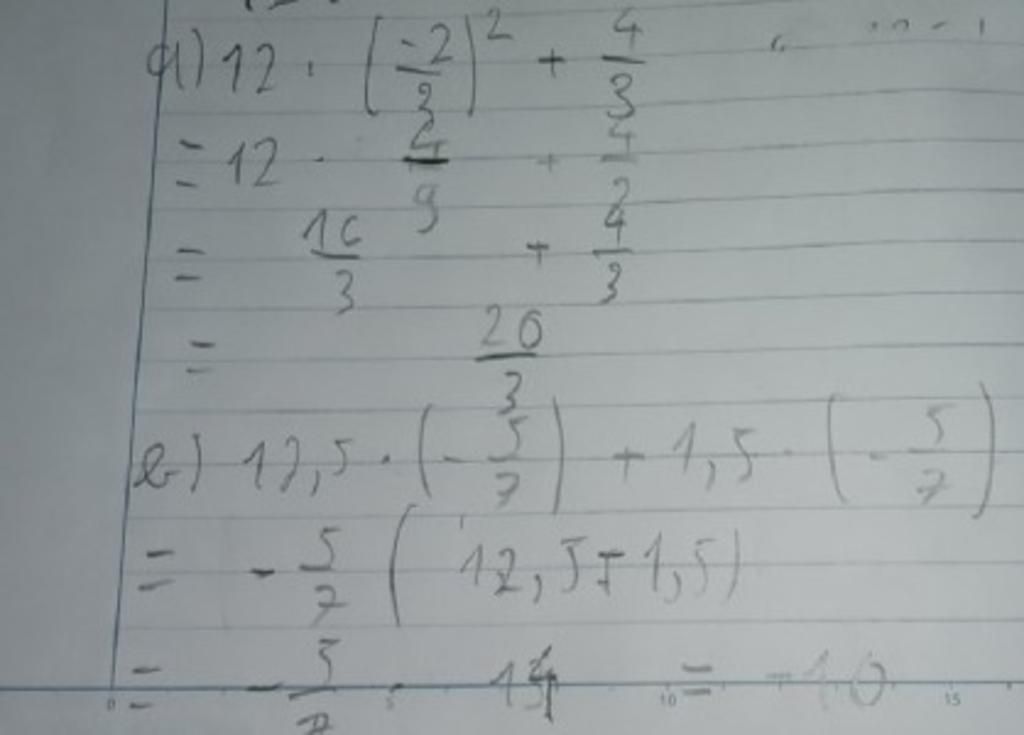 a) 12 . (-2/3)² + 4/3
= 12 . 4/9 + 4/2
= 16/3 + 4/3
= 20/3
b) 12,5 . (- 5/7) + 1,5 . (- 5/7)
= - 5/7 ( 12,5 + 1,5)
= - 5/7 . 14 = -10
0 5 10 15